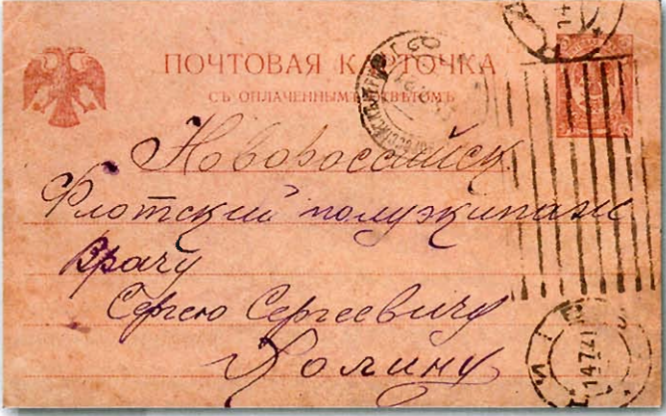 ПОЧТОВАЯ КАРТОЧКА
СЪ ОПЛАЧЕННЫМЪ ОТВѢТОМЪ
Новороссийск
Флотский полуэкипаж
Врачу
Сергею Сергеевичу
Холину
14741